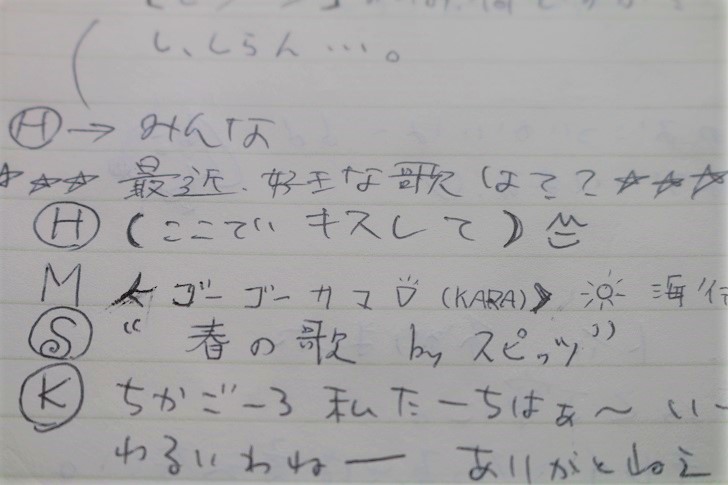 し、しらん…。
Ⓗ→みんな
☆☆☆ 最近、好きな歌は?? ☆☆☆
Ⓗ (ここでいキスして)
M ゴーゴーサマー♡(KARA) 海行
Ⓢ “春の歌 by スピッツ”
Ⓚ ちかごーろ 私たーちはぁ〜 いー
わるいわねー ありがとねえ